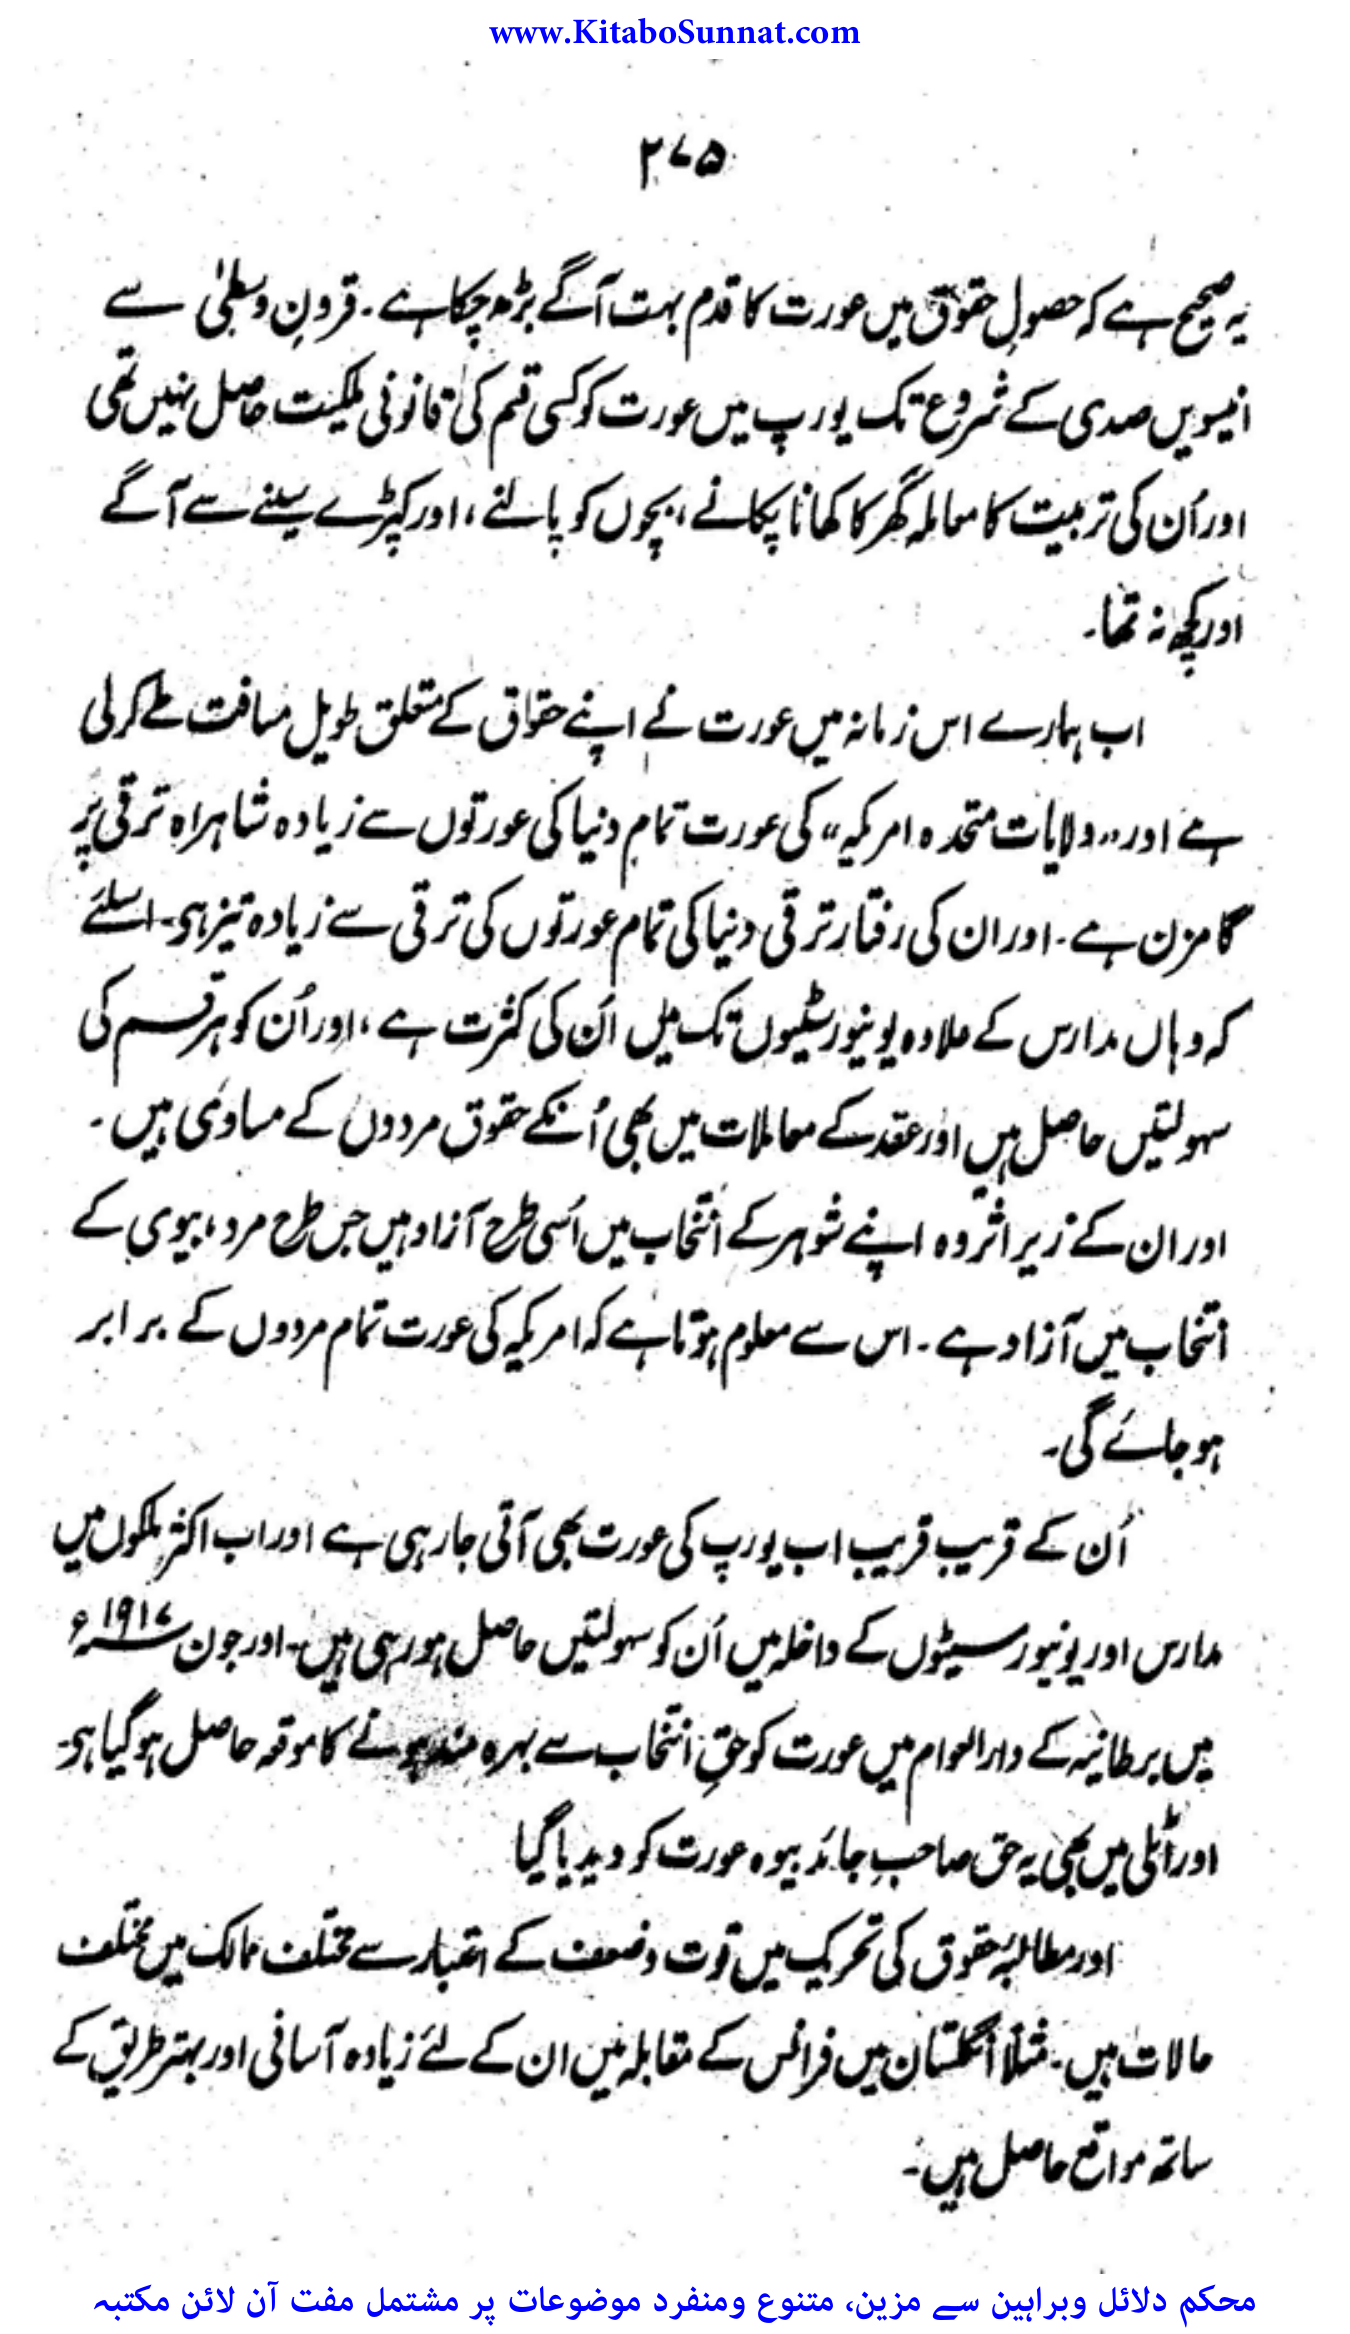 www.KitaboSunnat.com
۲۷۵
یہ صحیح ہے کہ حصولِ حقوق میں عورت کا قدم بہت آگے بڑھ چکا ہے۔ قرونِ وسطیٰ سے
انیسویں صدی کے شروع تک یورپ میں عورت کو کسی قسم کی قانونی ملکیت حاصل نہیں تھی
اور اُن کی تربیت کا معاملہ گھر کا کھانا پکانے، بچوں کو پالنے، اور کپڑے سینے سے آگے
اور کچھ نہ تھا۔
اب ہمارے اس زمانہ میں عورت نے اپنے حقوق کے متعلق طویل مسافت طے کر لی
ہے اور "ولایات متحدہ امریکہ" کی عورت تمام دنیا کی عورتوں سے زیادہ شاہراہِ ترقی پر
گامزن ہے۔ اور ان کی رفتار ترقی دنیا کی تمام عورتوں کی ترقی سے زیادہ تیز ہی۔ اسلئے
کہ وہاں مدارس کے علاوہ یونیورسٹیوں تک میں اُن کی کثرت ہے، اور اُن کو ہر قسم کی
سہولتیں حاصل ہیں اور عقد کے معاملات میں بھی اُنکے حقوق مردوں کے مساوی ہیں۔
اور ان کے زیر اثر وہ اپنے شوہر کے انتخاب میں اُسی طرح آزاد ہیں جس طرح مرد، بیوی کے
انتخاب میں آزاد ہے۔ اس سے معلوم ہوتا ہے کہ امریکہ کی عورت تمام مردوں کے برابر
ہو جائے گی۔
اُن کے قریب قریب اب یورپ کی عورت بھی آتی جا رہی ہے اور اب اکثر ملکوں میں
مدارس اور یونیورسیٹوں کے داخلہ میں اُن کو سہولتیں حاصل ہو رہی ہیں۔ اور جون ۱۹۱۷ء
میں برطانیہ کے دارالعوام میں عورت کو حقِ انتخاب سے بہرہ مند ہونے کا موقعہ حاصل ہو گیا ہی۔
اور اٹلی میں بھی یہ حق صاحبِ جائد بیوہ عورت کو دیدیا گیا
اور مطالبۂ حقوق کی تحریک میں قوت و ضعف کے اعتبار سے مختلف ممالک میں مختلف
حالات ہیں۔ مثلاً انگلستان میں فرانس کے مقابلہ میں ان کے لئے زیادہ آسانی اور بہتر طریق کے
ساتھ مواقع حاصل ہیں۔
محکم دلائل وبراہین سے مزین، متنوع ومنفرد موضوعات پر مشتمل مفت آن لائن مکتبہ